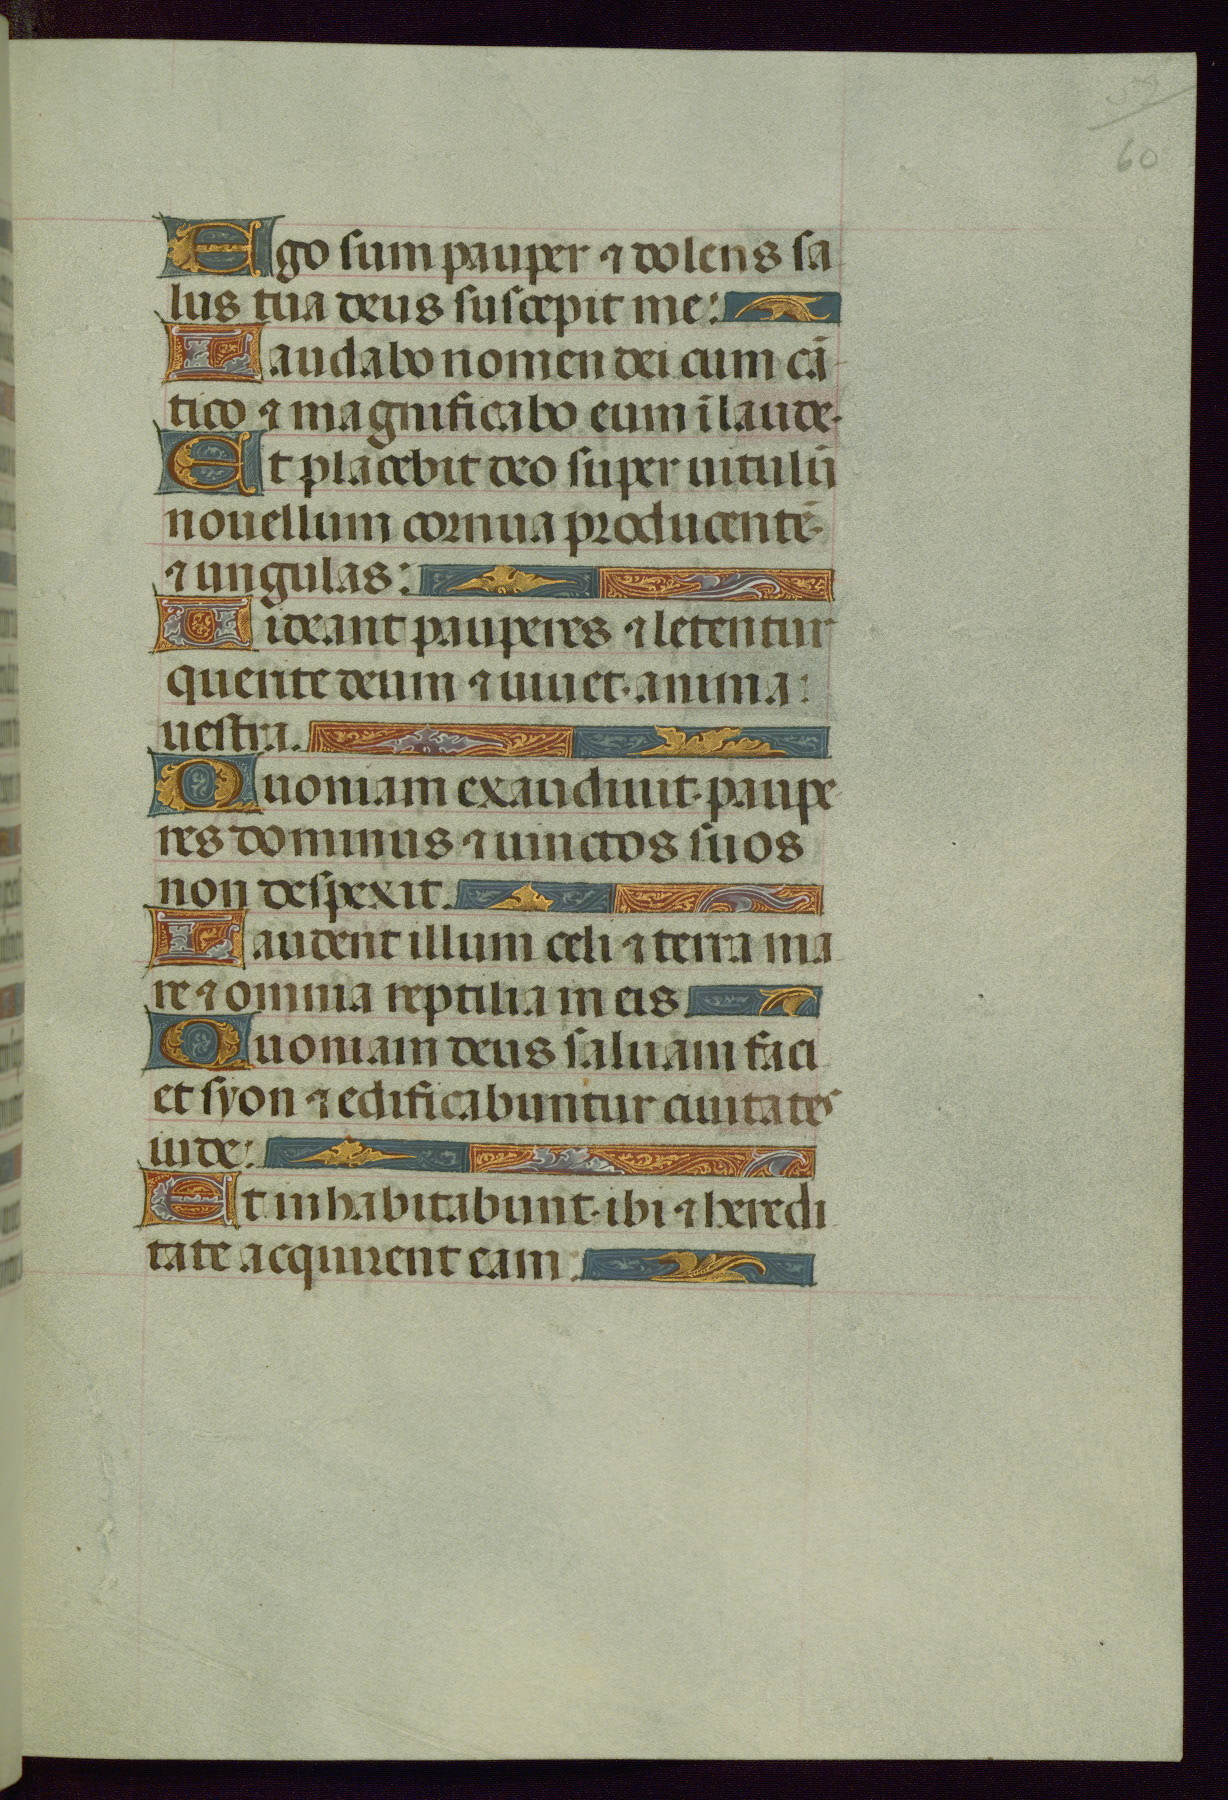 59
60
Ego sum pauper ⁊ dolens sa
lus tua deus suscepit me:
Laudabo nomen dei cum cā
tico ⁊ magnificabo eum ī laude.
Et placebit deo super uitulū
nouellum cornua producentē
⁊ ungulas:
Uideant pauperes ⁊ letentur
querite deum ⁊ uiuet anima:
uestra.
Quoniam exaudiuit paupe
res dominus ⁊ uinctos suos
non despexit.
Laudent illum celi ⁊ terra ma
re ⁊ omnia reptilia in eis
Quoniam deus saluam faci
et syon ⁊ edificabuntur ciuitates
iude:
Et inhabitabunt ibi ⁊ heredi
tate acquirent eam: